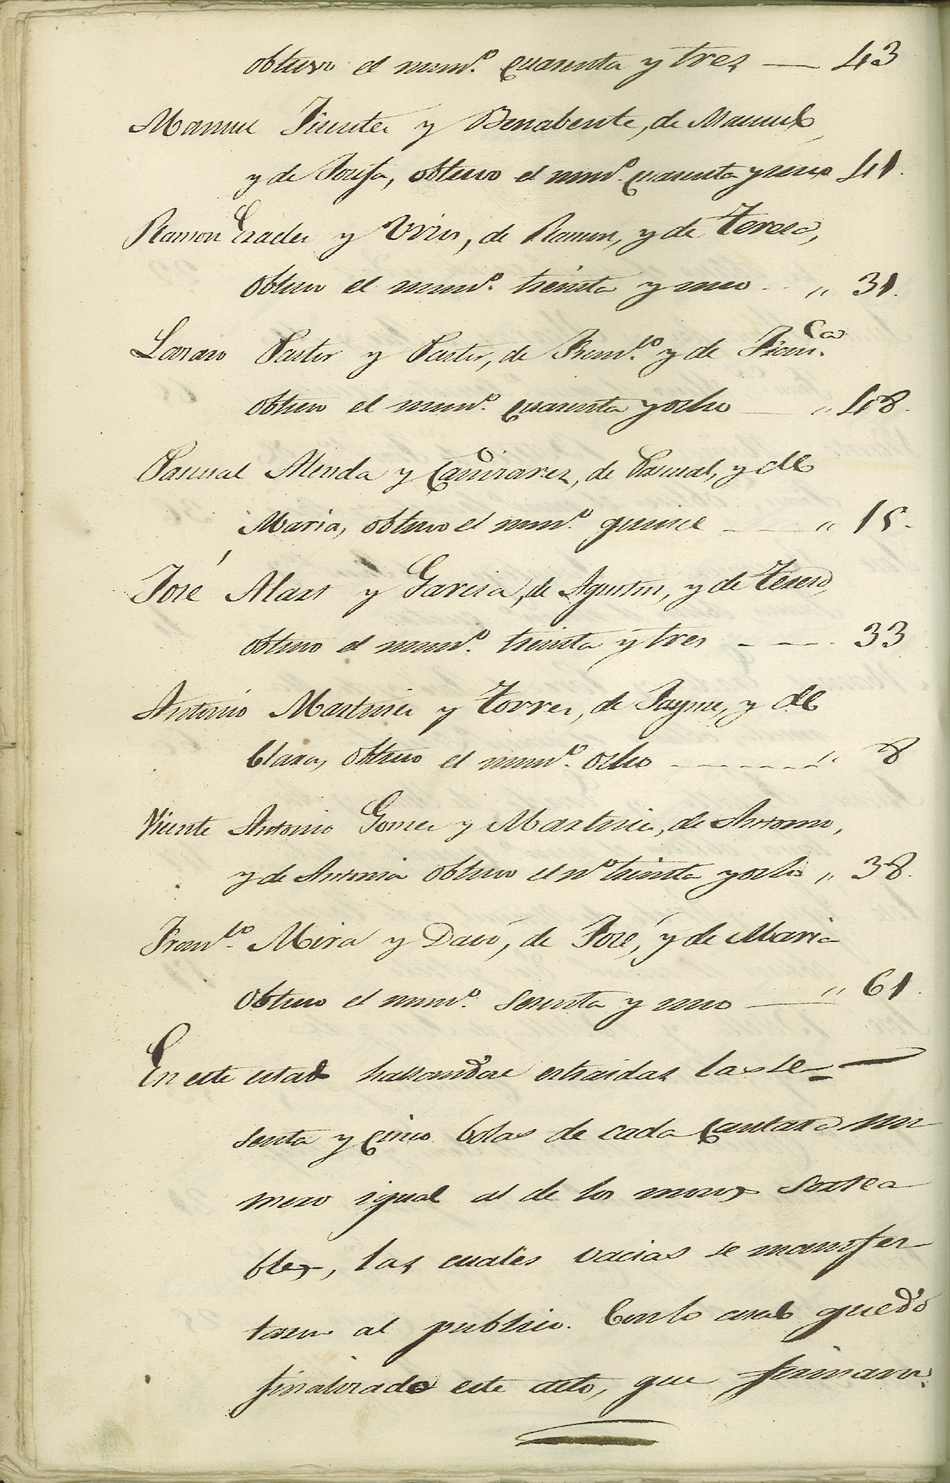 obtuvo el num.º cuarenta y tres — 43
Manuel Fuentes y Benabente, de Manuel,
y de Josefa, obtuvo el num.º cuarenta y uno 41.
Ramon y de Ramon, y de Teresa,
obtuvo el num.º treinta y uno „ 31.
Lazaro Pastor y Pastor, de y de Fran.ca
obtuvo el num.º cuarenta y ocho — „ 48.
Pascual Alenda y Cañizarez, de Pascual, y de
Maria, obtuvo el num.º quince — „ 15.
José y Garcia, de Agustin, y de Teresa,
obtuvo el num.º treinta y tres — 33
Antonio Martinez y Torres, de Jayme, y de
Clara, obtuvo el num.º ocho — „ 8
Vicente Antonio Gomez y Martinez, de Antonio,
y de Antonia obtuvo el nº treinta y ocho „ 38.
Fran.co Mira y de José, y de Maria
obtuvo el num.º sesenta y uno — „ 61.
En este estado hallandose extraidas las se-
senta y cinco bolas de cada cantaro nu-
mero igual al de los mozos sortea-
bles, las cuales vacias se manifes-
taron al publico. Con lo cual quedó
finalizado este acto, que firmaron.